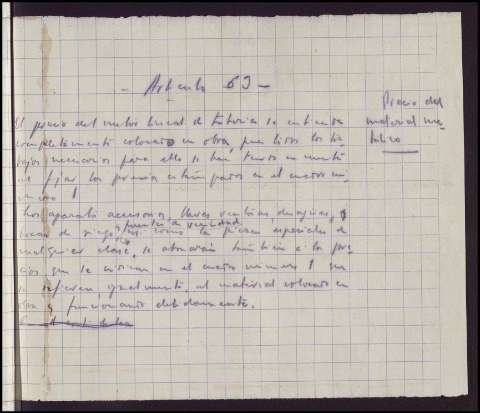 - Artículo 63 -
Precio del
material me-
tálico
El precio del metro lineal de tubería se entiende
completamente colocado en obra, pues todos los tra-
bajos necesarios para ello se han tenido en cuenta
al fijar los precios estampados en el cuadro nú-
mero 1
Los aparatos accesorios, llaves ventosas desagües,
bocas de riego, fuentes de vecindad
así como las piezas especiales de
cualquier clase, se abonarán también a los pre-
cios que se asignan en el cuadro número 1 que
se refieren igualmente, al material colocado en
obra y funcionando debidamente.